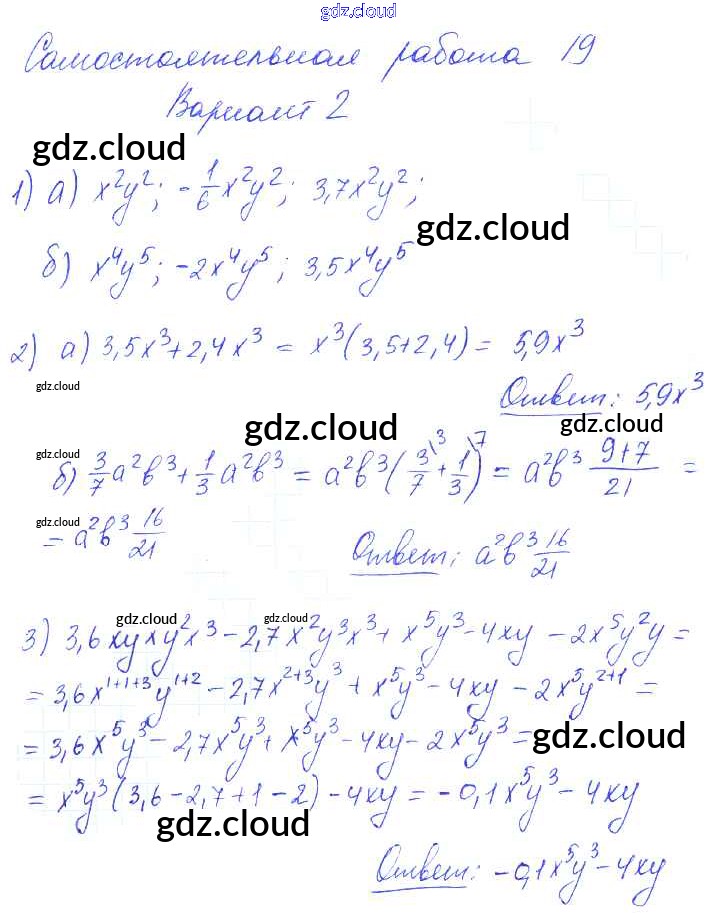 gdz.cloud
Самостоятельная работа 19
Вариант 2
gdz.cloud
1) а) x²y²; -1/6x²y²; 3,7x²y²;
gdz.cloud
б) x⁴y⁵; -2x⁴y⁵; 3,5x⁴y⁵
2) а) 3,5x³+2,4x³ = x³(3,5+2,4) = 5,9x³
gdz.cloud
Ответ: 5,9x³
gdz.cloud gdz.cloud
gdz.cloud
б) 3/7a²b³+1/3a²b³ = a²b³(3/7\³+1/3\⁷) = a²b³ 9+7/21 =
gdz.cloud
= a²b³ 16/21 Ответ: a²b³ 16/21
gdz.cloud gdz.cloud
3) 3,6xyxy²x³ - 2,7x²y³x³ + x⁵y³ - 4xy - 2x⁵y²y =
= 3,6x¹⁺¹⁺³y¹⁺² - 2,7x²⁺³y³ + x⁵y³ - 4xy - 2x⁵y²⁺¹ =
= 3,6x⁵y³ - 2,7x⁵y³ + x⁵y³ - 4xy - 2x⁵y³ =
gdz.cloud
= x⁵y³(3,6-2,7+1-2) - 4xy = -0,1x⁵y³ - 4xy
gdz.cloud
Ответ: -0,1x⁵y³ - 4xy